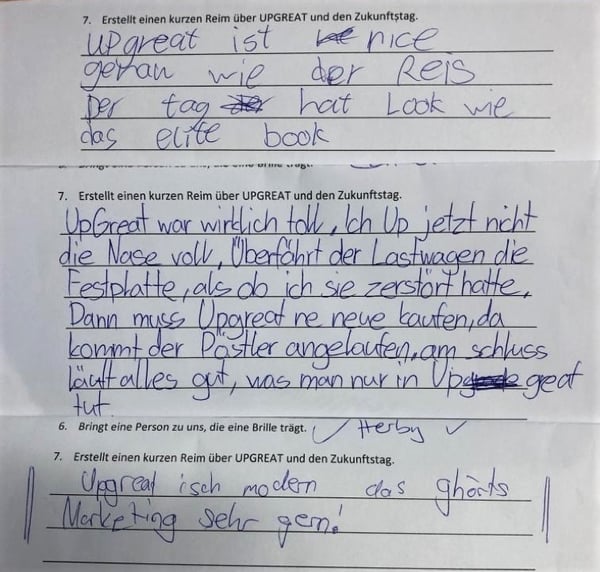 7. Erstellt einen kurzen Reim über UPGREAT und den Zukunftstag.
UPgreat ist nice
genau wie der Reis
Der tag hat Look wie
das elite book
7. Erstellt einen kurzen Reim über UPGREAT und den Zukunftstag.
UpGreat war wirklich toll, Ich Up jetzt nicht
die Nase voll, Überfährt der Lastwagen die
Festplatte, als ob ich sie zerstört hatte,
Dann muss Upgreat ne neue kaufen, da
kommt der Pöstler angelaufen, am schluss
läuft alles gut, was man nur in Up great
tut.
6. Bringt eine Person zu uns, die eine Brille trägt. Herby
7. Erstellt einen kurzen Reim über UPGREAT und den Zukunftstag.
Upgreat isch modern das ghörts
Marketing sehr gern!